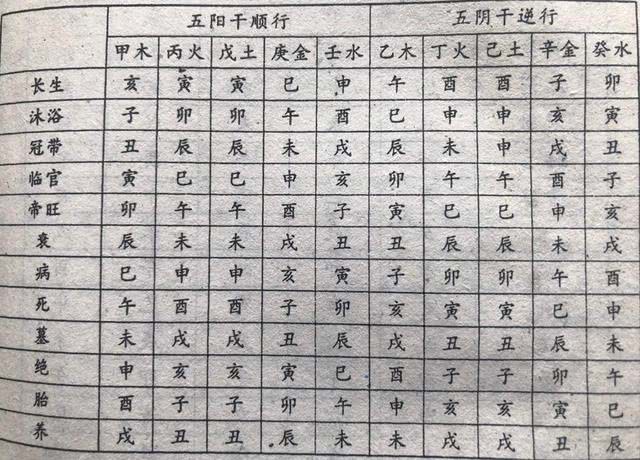 五阳干顺行 五阴干逆行
甲木 丙火 戊土 庚金 壬水 乙木 丁火 己土 辛金 癸水
长生 亥 寅 寅 巳 申 午 酉 酉 子 卯
沐浴 子 卯 卯 午 酉 巳 申 申 亥 寅
冠带 丑 辰 辰 未 戌 辰 未 申 戌 丑
临官 寅 巳 巳 申 亥 卯 午 午 酉 子
帝旺 卯 午 午 酉 子 寅 巳 巳 申 亥
衰 辰 未 未 戌 丑 丑 辰 辰 未 戌
病 巳 申 申 亥 寅 子 卯 卯 午 酉
死 午 酉 酉 子 卯 亥 寅 寅 巳 申
墓 未 戌 戌 丑 辰 戌 丑 丑 辰 未
绝 申 亥 亥 寅 巳 酉 子 子 卯 午
胎 酉 子 子 卯 午 申 亥 亥 寅 巳
养 戌 丑 丑 辰 未 未 戌 戌 丑 辰